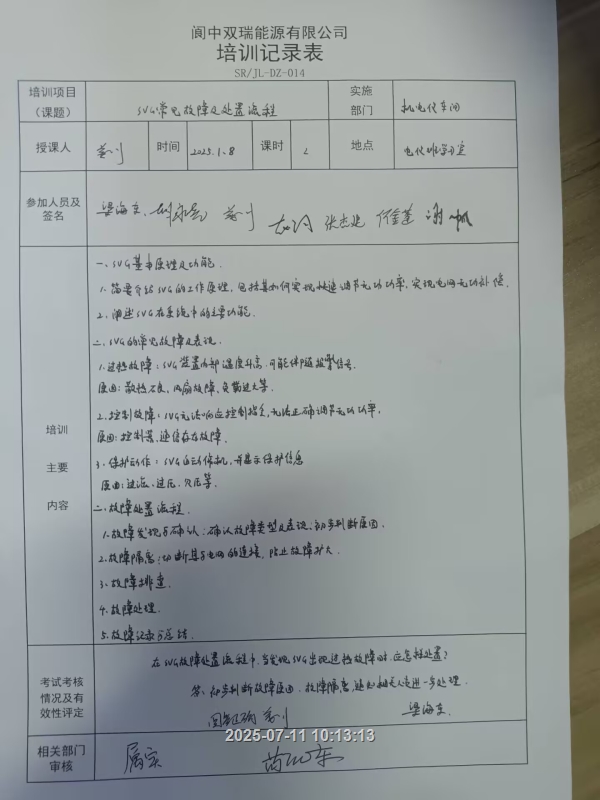 阆中双瑞能源有限公司
培训记录表
SR/JL-DZ-014
培训项目（课题） SVG常见故障及处置流程 实施部门 机电仪车间
授课人 时间 2025.1.8 课时 2 地点 电仪班学习室
参加人员及签名 梁海东
培训主要内容
一、SVG基本原理及功能.
1. 简要介绍SVG的工作原理，包括其如何实现快速调节无功功率，实现电网无功补偿.
2. 阐述SVG在系统中的主要功能.
二、SVG的常见故障及表现.
1. 过热故障：SVG装置内部温度升高，可能伴随报警信号.
原因：散热不良、风扇故障、负载过大等.
2. 控制故障：SVG无法响应控制指令，无法正确调节无功功率.
原因：控制器、通信存在故障.
3. 保护动作：SVG自动停机，并显示保护信息
原因：过流、过压、欠压等.
二、故障处置流程.
1. 故障发现与确认：确认故障类型及表现，初步判断原因.
2. 故障隔离：切断其与电网的连接，防止故障扩大.
3. 故障排查.
4. 故障处理.
5. 故障记录与总结.
考试考核情况及有效性评定
在SVG故障处置流程中，当发现SVG出现过热故障时，应怎样处置？
答：初步判断故障原因，故障隔离，通知相关人员进一步处理.
回答正确 梁海东.
2025-07-11 10:13:13
相关部门审核 属实